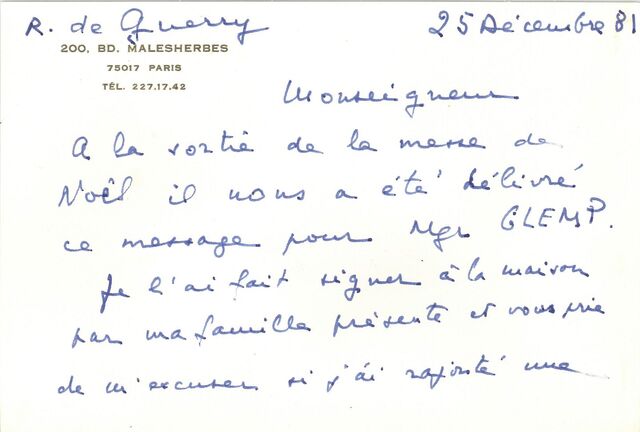 R. de Querry
25 Décembre 81
200, BD. MALESHERBES
75017 PARIS
TÉL. 227.17.42
Monseigneur
A la sortie de la messe de
Noël il nous a été délivré
ce message pour Mgr GLEMP.
Je l'ai fait signer à la maison
par ma famille présente et vous prie
de m'excuser si j'ai rajouté une